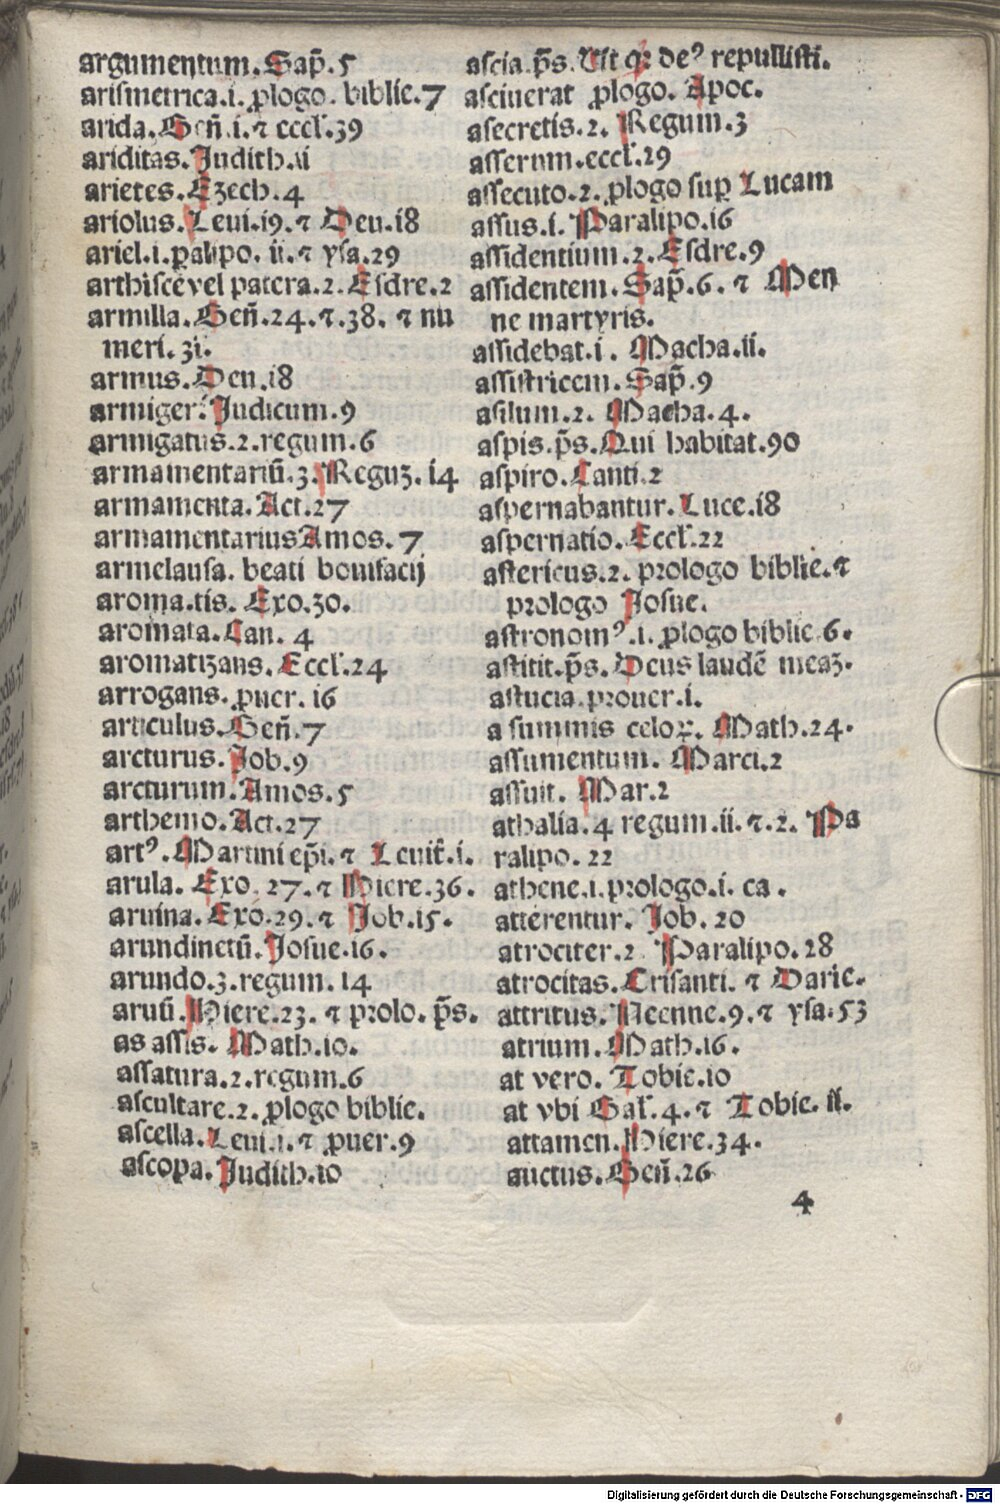 argumentum.Sap̄.5
arismetrica.i.ꝓlogo.biblie.7
arida.Gen̄.i.⁊ eccl'.39
ariditas.Judith.ii
arietes.Ezech.4
ariolus.Leui.19.⁊ Deu.i8
ariel.i.ꝑalipo. ii.⁊ ysa.29
arthiscē vel patera.2.Esdre.2
armilla.Gen̄.24.⁊.38. ⁊ nu
meri.3i.
armus.Deu.i8
armiger.Judicum.9
armigatus.2.regum.6
armamentariū.3.Reguꝫ.i4
armamenta.Act.27
armamentariusAmos.7
armelausa. beati bonifacij
aroma.tis. Exo.30.
aromata.Can. 4
aromatizans. Eccl'.24
arrogans.ꝓuer. i6
articulus.Gen̄.7
arcturus.Job.9
arcturum.Amos.5
arthemo.Act.27
artꝰ.Martini ep̄i.⁊ Leuit̄.i.
arula. Exo. 27.⁊ Hiere.36.
aruina.Exo.29.⁊ Job.i5.
arundinetū.Josue.i6.
arundo.3.regum. i4
aruū.Hiere.23.⁊ prolo. p̄s.
as assis. Math.io.
assatura.2.regum.6
ascultare.2.ꝓlogo biblie.
ascella.Leui.i.⁊ ꝓuer.9
ascopa.Judith.io
ascia.p̄s.Ut qꝫ deꝰ repullisti.
asciuerat ꝓlogo. Apoc.
asecretis.2. Regum.3
asserum.eccl'.29
assecuto.2.ꝓlogo suꝑ Lucam
assus.i. Paralipo.i6
assidentium.2.Esdre.9
assidentem.Sap̄.6.⁊ Men
ne martyris.
assidebat.i. Macha.ii.
assistricem.Sap̄.9
asilum.2. Macha.4.
aspis.p̄s.Qui habitat.90
aspiro.Canti.2
aspernabantur.Luce.i8
aspernatio.Eccl'.22
astericus.2. prologo biblie.⁊
prologo Josue.
astronomꝰ.i.ꝓlogo biblie 6.
astitit.p̄s.Deus laudē meaꝫ.
astucia.prouer.i.
a summis celoꝝ. Math.24.
assumentum. Marci.2
assuit. Mar.2
athalia.4 regum.ii.⁊.2. Pa
ralipo. 22
athene.i.prologo.i. ca.
atterentur. Job. 20
atrociter.2 Paralipo.28
atrocitas.Crisanti.⁊ Darie.
attritus.Neenne.9.⁊ ysa.53
atrium.Math.i6.
at vero. Tobie.io
at vbi Gal'.4.⁊ Tobie. ii.
attamen.Hiere.34.
auctus.Gen̄.26
4
Digitalisierung gefördert durch die Deutsche Forschungsgemeinschaft - DFG